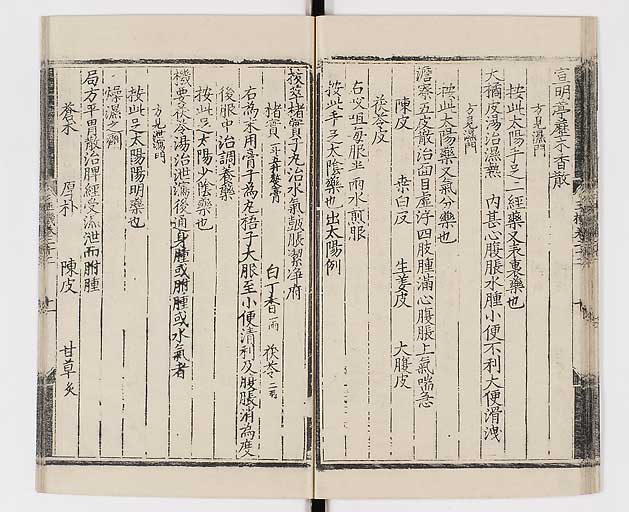 宣明葶藶木香散
方見濕門
按此太陽手足二經藥又表裏藥也
大橘皮湯治濕熱內甚心腹脹水腫小便不利大便滑洩
方見濕門
按此太陽藥又氣分藥也
澹寮五皮散治面目虛浮四肢腫滿心腹脹上氣喘急
陳皮 桑白皮 生姜皮 大腹皮
茯苓皮
右㕮咀每服 兩水煎服
按此手足太陰藥也出太陽例
拔萃楮實子丸治水氣皷脹潔淨府
楮實 白丁香一兩 茯苓二兩
右為末用膏子為丸梧子大服至小便清利及腹脹消為度
後服中治調養藥
按此足太陽少陰藥也
機要茯苓湯治泄瀉後通身腫或胕腫或水氣者
方見泄瀉門
按此足太陽陽明藥也
燥濕之劑
局方平胃散治脾經受濕泄而胕腫
蒼朮 厚朴 陳皮 甘草炙